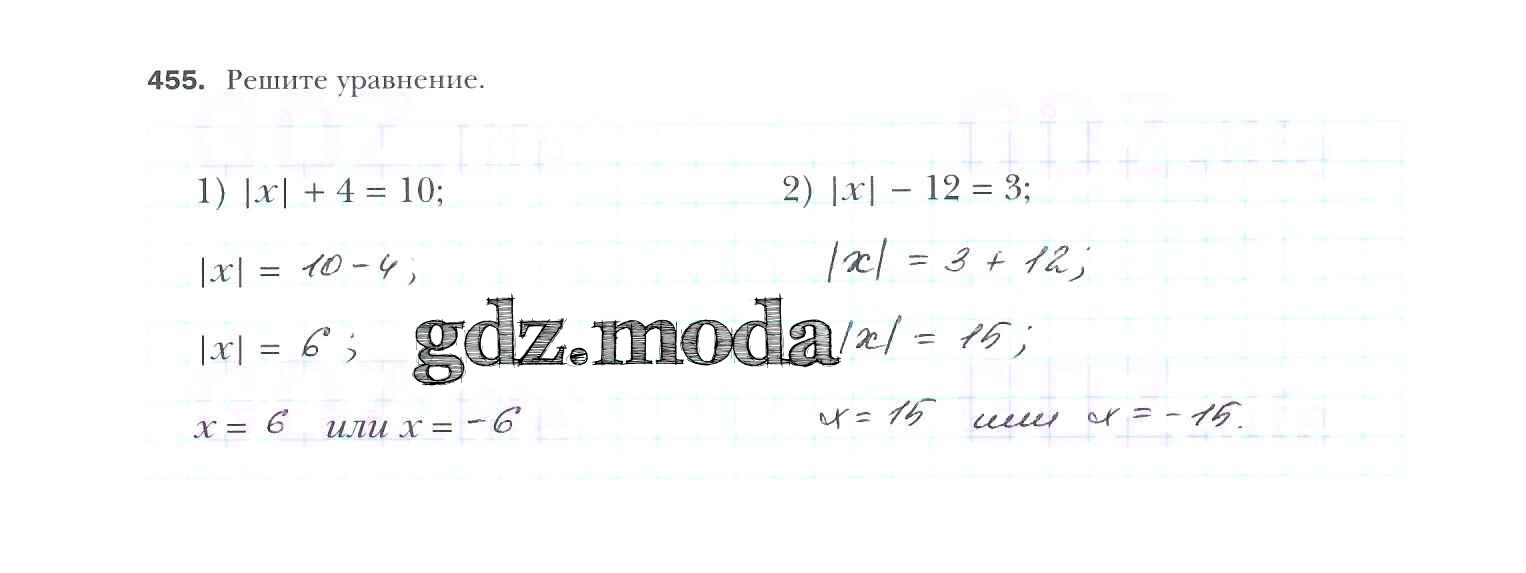 455. Решите уравнение.
1) |x| + 4 = 10;
|x| = 10 - 4;
|x| = 6;
x = 6 или x = -6
2) |x| − 12 = 3;
|x| = 3 + 12;
|x| = 15;
x = 15 или x = -15.
gdz.moda